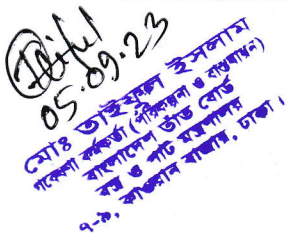 05.09.23
মোঃ তাইফুল ইসলাম
গবেষণা কর্মকর্তা (পরিকল্পনা ও বাস্তবায়ন)
বাংলাদেশ তাঁত বোর্ড
বস্ত্র ও পাট মন্ত্রণালয়
কাওরান বাজার, ঢাকা।